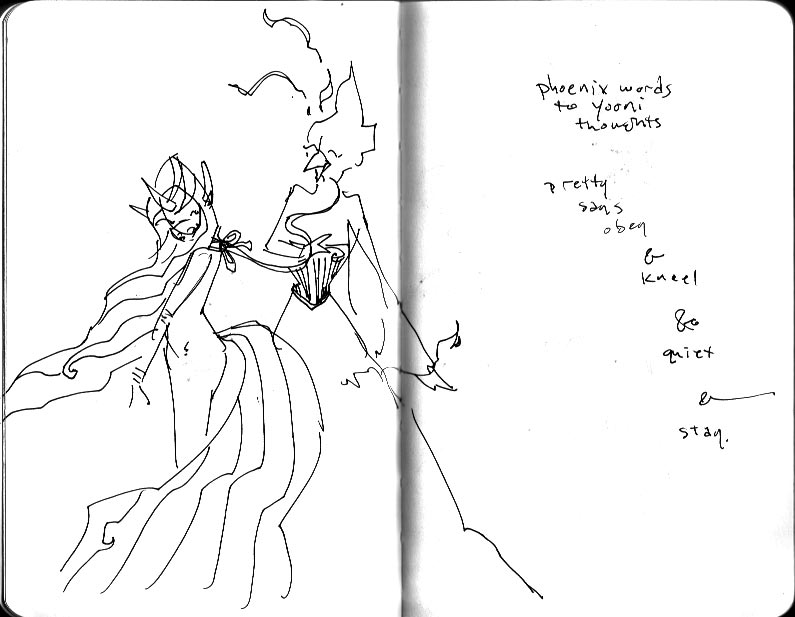 phoenix words
to yooni
thoughts
pretty
says
obey
&
kneel
&
quiet
&
stay.